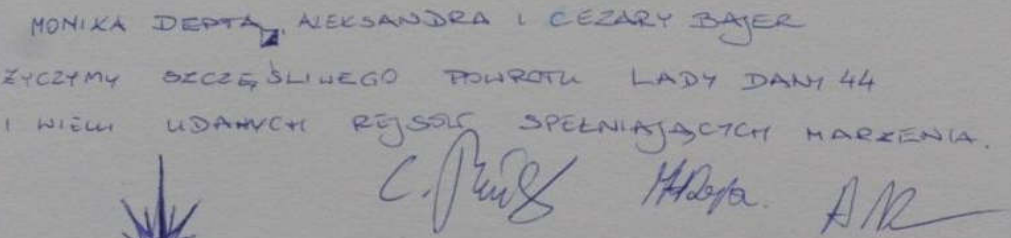 MONIKA DEPTA, ALEKSANDRA I CEZARY BAJER
ŻYCZYMY SZCZĘŚLIWEGO POWROTU LADY DANY 44
I WIELU UDANYCH REJSÓW SPEŁNIAJĄCYCH MARZENIA.